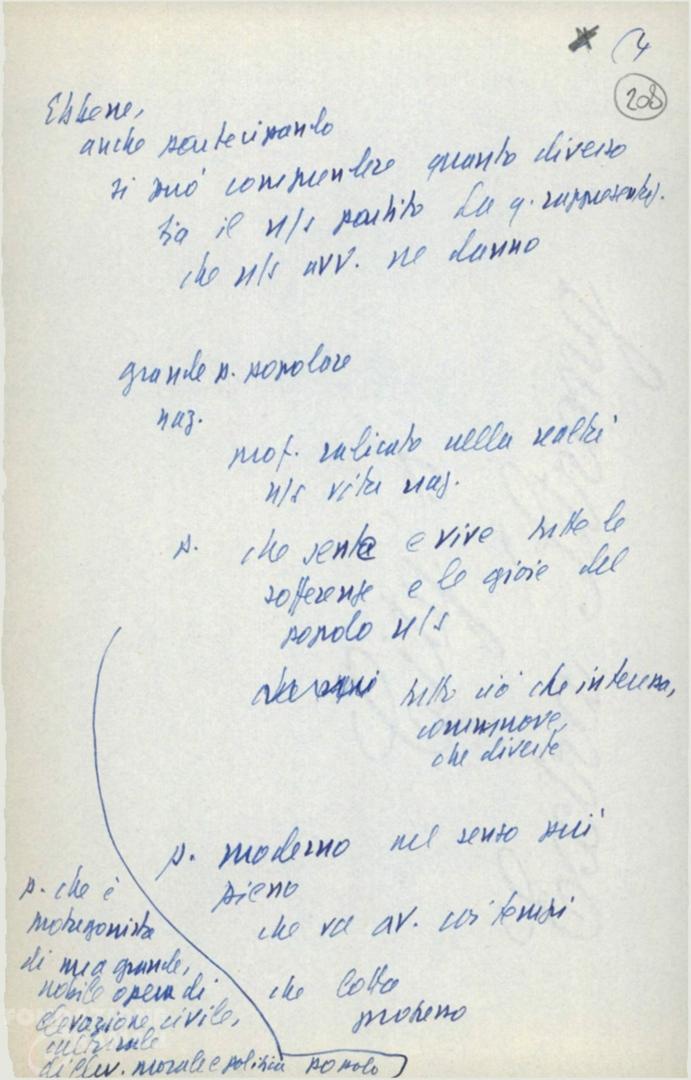 4
208
Ebbene,
anche partecipando
si può comprendere quanto diverso
sia il n/s partito da q. rappresentaz.
che n/s avv. ne danno
grande p. popolare
naz.
prof. radicato nella realtà
n/s vita naz.
p. che sente e vive tutte le
sofferenze e le gioie del
popolo n/s
tutto ciò che interessa,
commuove,
che diverte
p. moderno nel senso più
pieno
che va av. coi tempi
che lotta
progresso
p. che è
protagonista
di una grande,
nobile opera di
elevazione civile,
culturale
di elev. morale e politica popolo